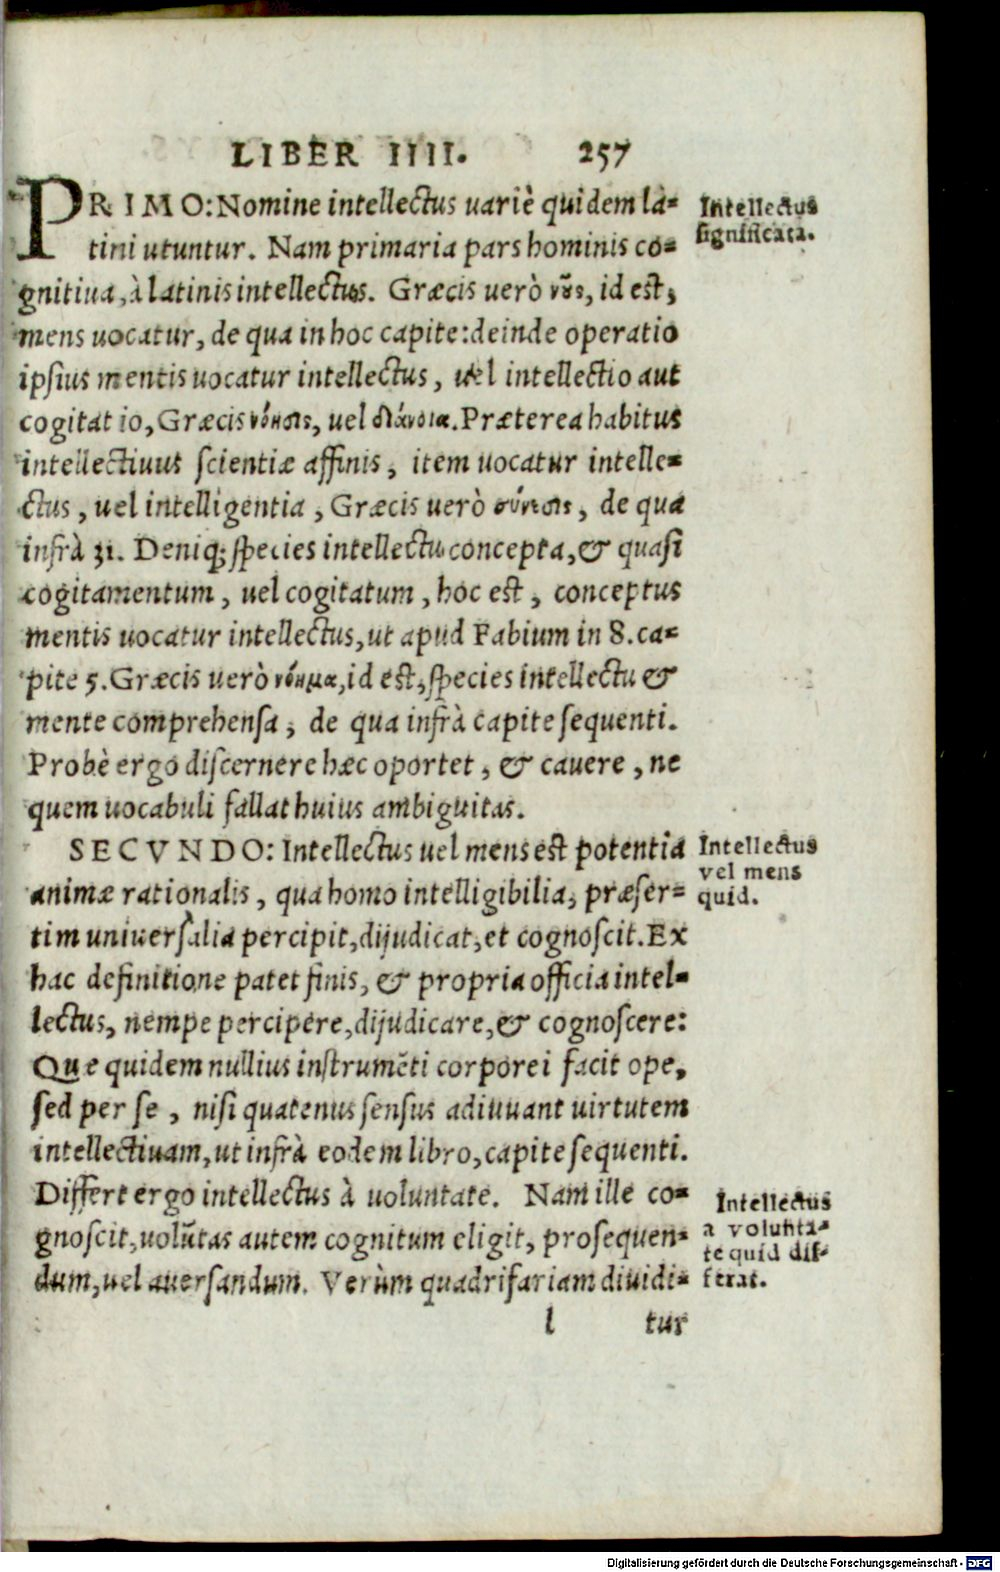 LIBER IIII. 257
PRIMO: Nomine intellectus uariè quidem la-
tini utuntur. Nam primaria pars hominis co-
gnitiua, à latinis intellectus. Græcis uerò νοῦς, id est,
mens uocatur, de qua in hoc capite: deinde operatio
ipsius mentis uocatur intellectus, uel intellectio aut
cogitatio, Græcis νόησις, uel διάνοια. Præterea habitus
intellectiuus scientiæ affinis, item uocatur intelle-
ctus, uel intelligentia, Græcis uerò σύνεσις, de qua
infrà 31. Deniq; species intellectu concepta, & quasi
cogitamentum, uel cogitatum, hoc est, conceptus
mentis uocatur intellectus, ut apud Fabium in 8. ca-
pite 5. Græcis uerò νόημα, id est, species intellectu &
mente comprehensa, de qua infrà capite sequenti.
Probè ergo discernere hæc oportet, & cauere, ne
quem uocabuli fallat huius ambiguitas.
Intellectus
significata.
SECVNDO: Intellectus uel mens est potentia
animæ rationalis, qua homo intelligibilia, præser-
tim uniuersalia percipit, dijudicat, et cognoscit. Ex
hac definitione patet finis, & propria officia intel-
lectus, nempe percipere, dijudicare, & cognoscere:
Que quidem nullius instrumēti corporei facit ope,
sed per se, nisi quatenus sensus adiuuant uirtutem
intellectiuam, ut infrà eodem libro, capite sequenti.
Differt ergo intellectus à uoluntate. Nam ille co-
gnoscit, uolūtas autem cognitum eligit, prosequen-
dum, uel auersandum. Verùm quadrifariam diuidi-
Intellectus
vel mens
quid.
Intellectus
a volunta-
te quid dif-
ferat.
l tur
Digitalisierung gefördert durch die Deutsche Forschungsgemeinschaft - DFG